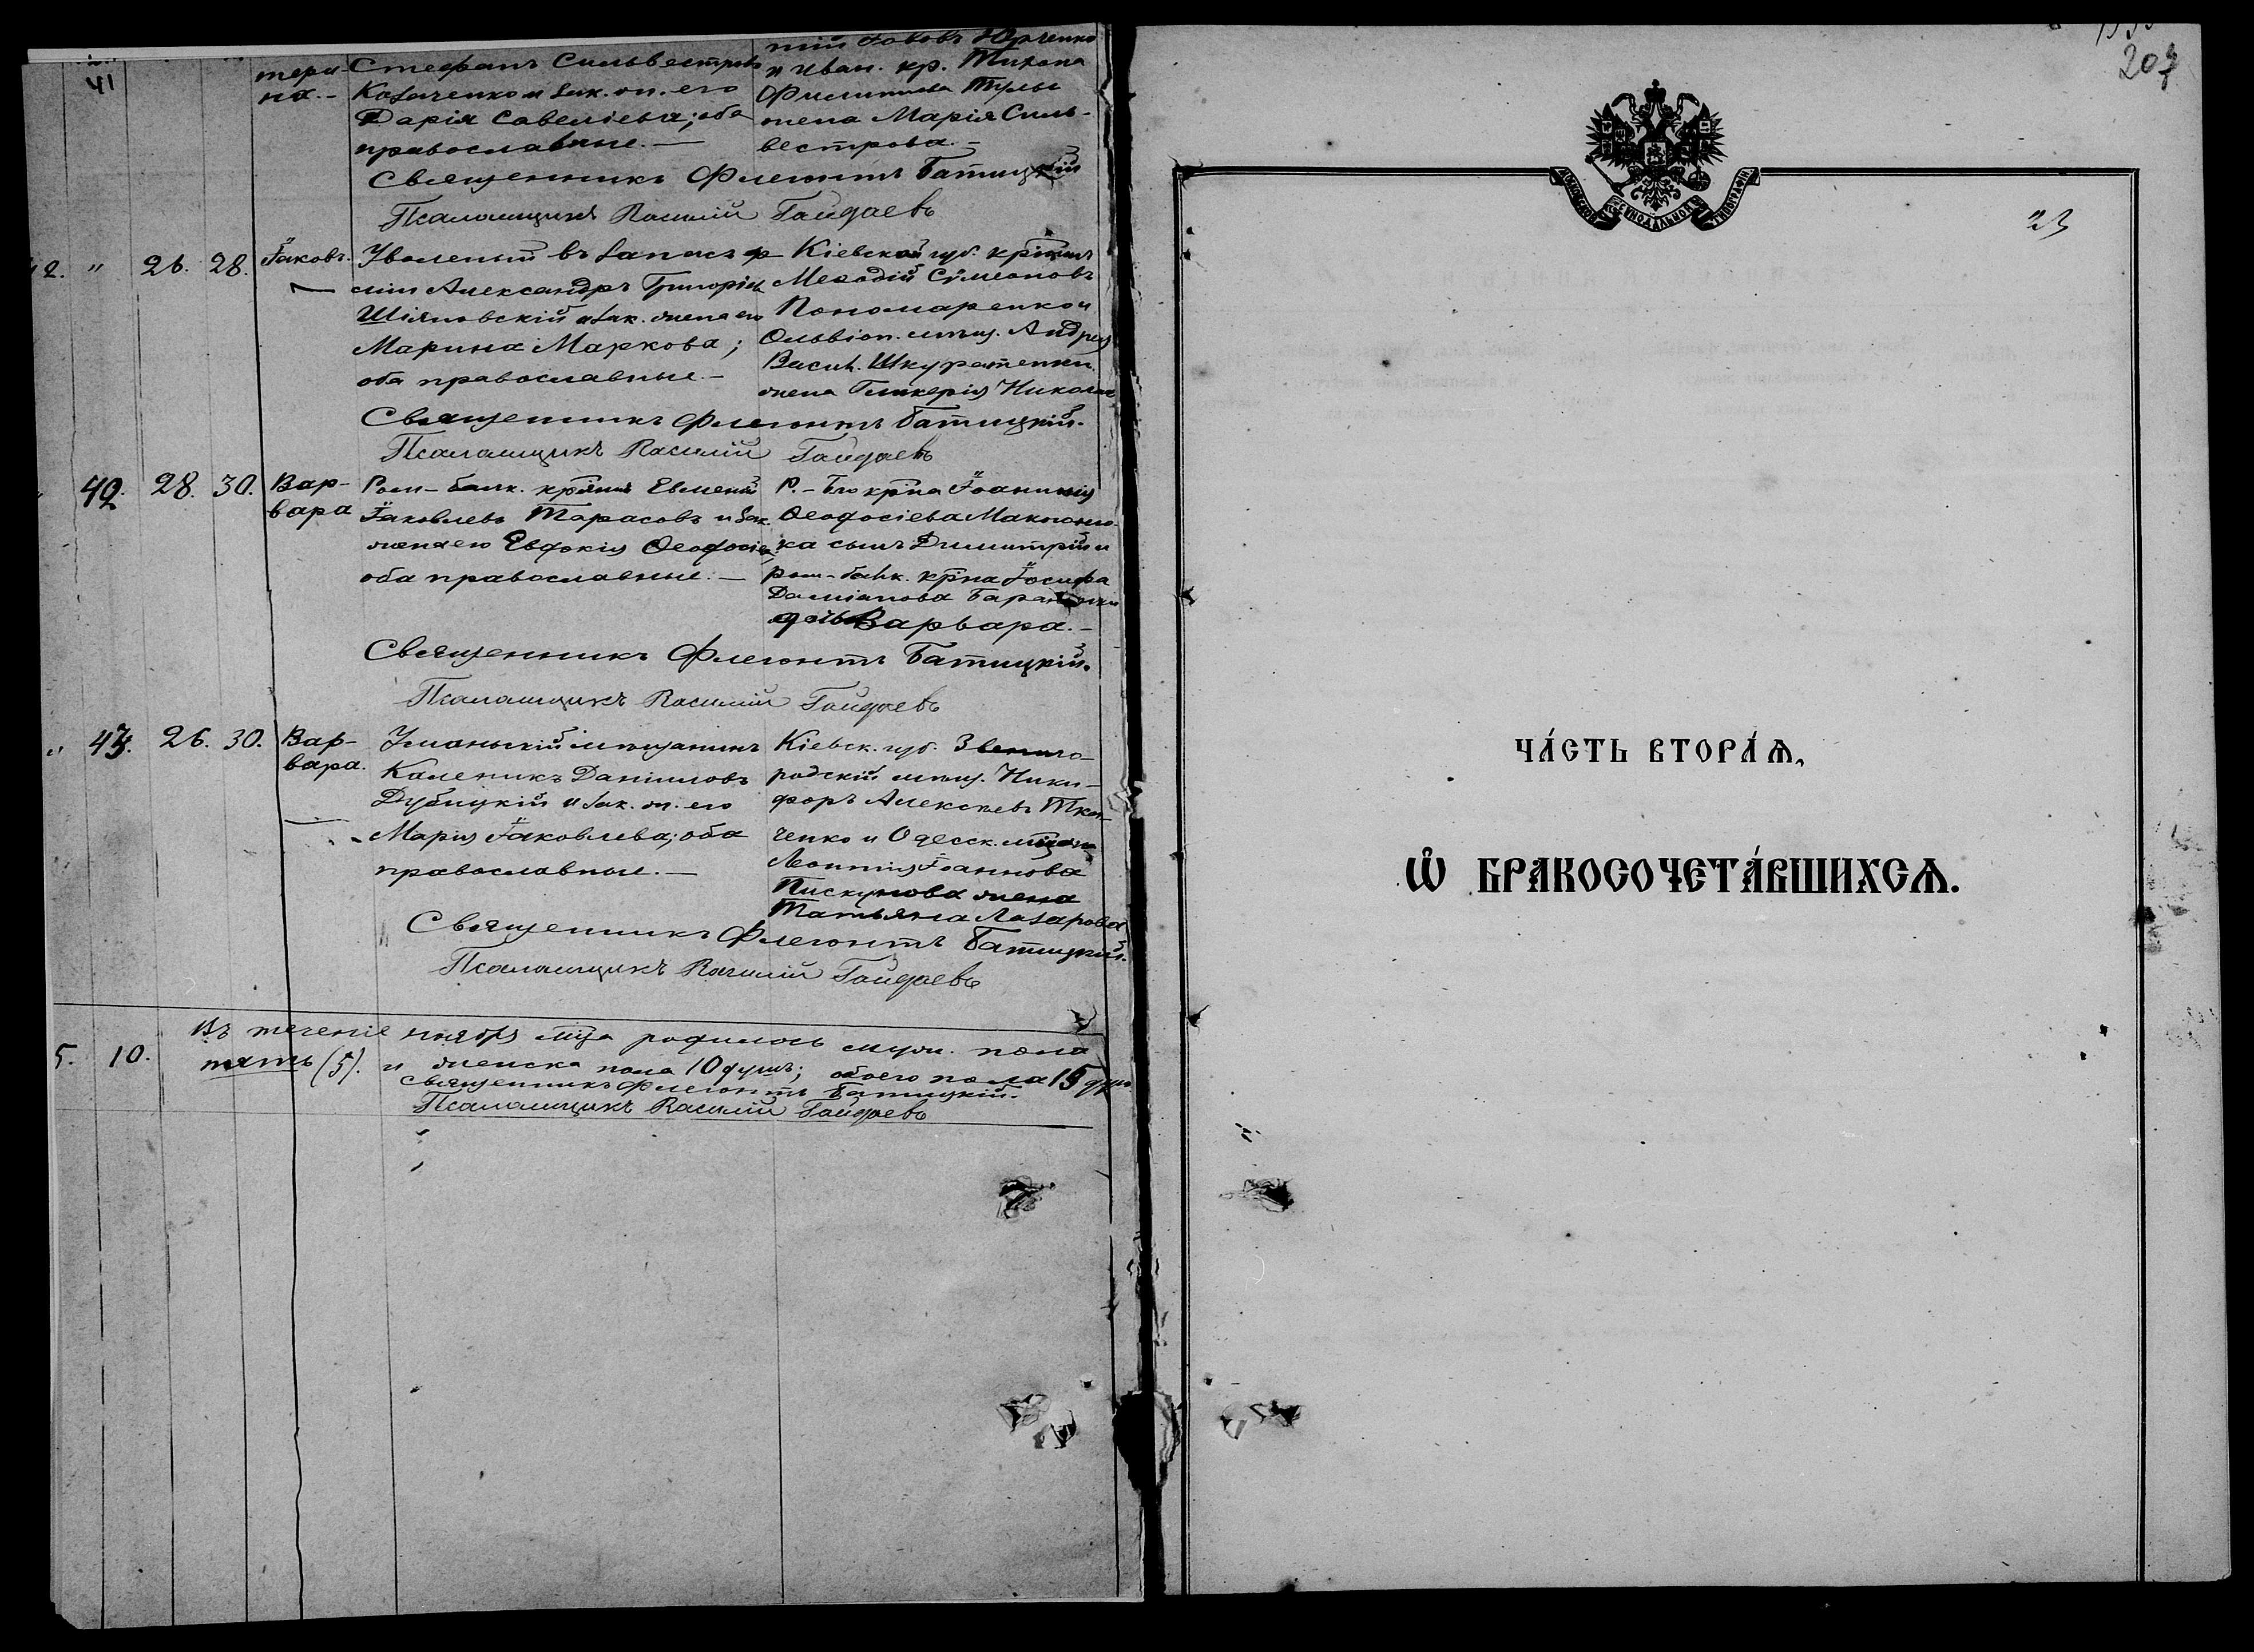 41
тери- Стефанъ Сильвестровъ
на.- Козаченко и зак. ж. его
Дарія Савеліева; оба
православные. —
тій Іаковъ Юрченко
и Иван. кр. Тихона
Филиппова Тулы
жена Марія Силь-
вестрова.-
Священникъ Флегонтъ Батицкій
Псаломщикъ Василій Гайдаевъ
2. " 26. 28. Іаковъ.
Уволеный въ запасъ
Александръ Григоріевъ
Шіяновскій и зак. жена его
Марина Маркова;
оба православные.-
Кіевской губ. крѣстьян
Меѳодій Сѵмеоновъ
Пономаренко и
Ольвіоп. мѣщ. Андрея
Васил. Шкуратенки
жена Гликерія Николаев
Священникъ Флегонтъ Батицкій.
Псаломщикъ Василій Гайдаевъ
42. 28. 30. Вар-
вара
кр‑нинъ Евменій
Іаковлевъ Тарасовъ и зак.
жена его Евдокія Ѳеодосіев
оба православные. —
кр‑на Іоанникія
Ѳеодосіева
ка сынъ Димитрій и
кр‑на Іосифа
Даміанова
дочь Варвара.-
Священникъ Флегонтъ Батицкій.
Псаломщикъ Василій Гайдаевъ
" 43. 26. 30. Вар-
вара.
Уманьскій мѣщанинъ
Каленикъ Даніиловъ
Дубицкій и зак. ж. его
Марія Іаковлева; оба
православные. —
Кіевск. губ. Звениго-
родскій мѣщ. Ники-
форъ Алексѣевъ Ткач-
ченко и Одесск. мѣщ.
Леонтія Іоаннова
Пискунова жена
Татьяна Лазарова
Священникъ Флегонтъ Батицкій.
Псаломщикъ Василій Гайдаевъ
5. 10. Въ теченіе ноября мѣсяца родилось муж. пола
пять (5). и женска пола 10 душъ; обоего пола 15 душ
Священникъ Флегонтъ Батицкій.
Псаломщикъ Василій Гайдаевъ
207
МОСКОВСКОЙ СѴНОДАЛЬНОЙ ТИПОГРАФІИ
23
ЧА́СТЬ ВТОРА́Ѧ,
Ѽ БРАКОСОЧЕТА́ВШИХСѦ.